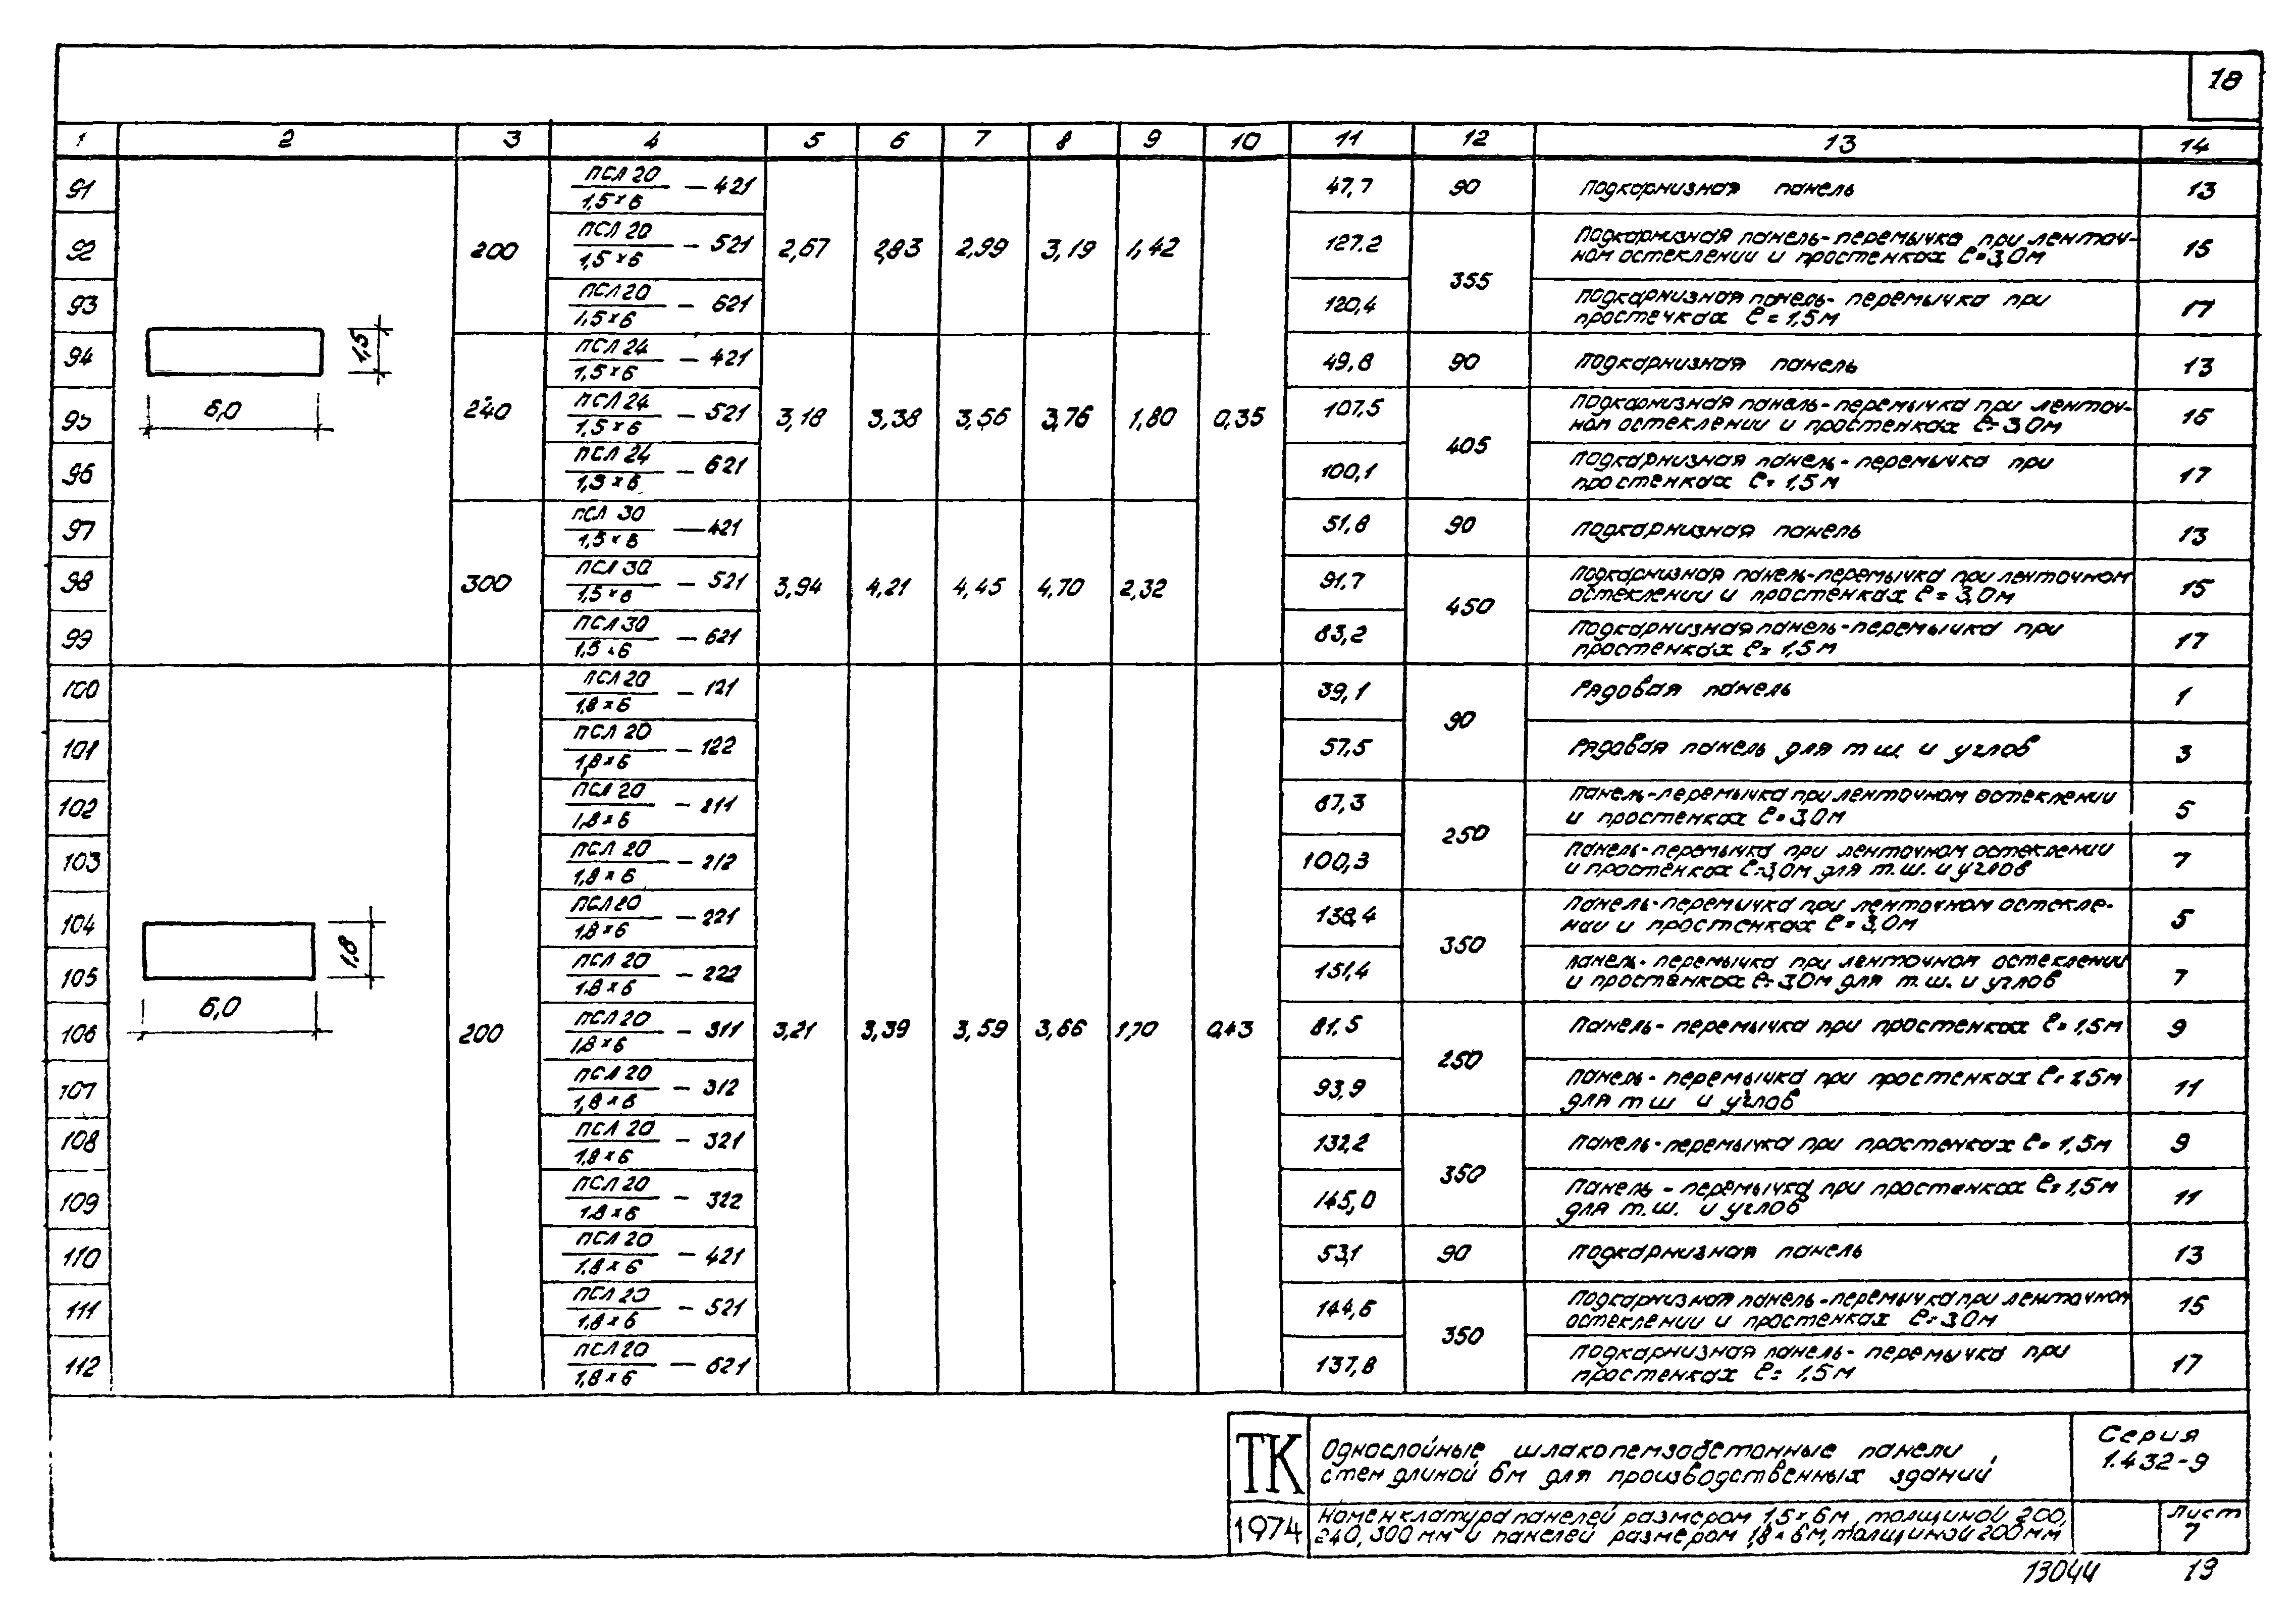 18
1 2 3 4 5 6 7 8 9 10 11 12 13 14
91 ПСЛ 20 / 1,5×6 — 421 47,7 90 Подкарнизная панель 13
92 200 ПСЛ 20 / 1,5×6 — 521 2,67 2,83 2,99 3,19 1,42 127.2 355 Подкарнизная панель-перемычка при ленточ-
ном остеклении и простенках ℓ=3,0м 15
93 ПСЛ 20 / 1,5×6 — 621 120,4 Подкарнизная панель-перемычка при
простенках ℓ=1,5м 17
1,5
6,0
94 ПСЛ 24 / 1,5×6 — 421 49,8 90 Подкарнизная панель 13
95 240 ПСЛ 24 / 1,5×6 — 521 3,18 3,38 3,56 3,76 1,80 0,35 107,5 405 Подкарнизная панель-перемычка при ленточ-
ном остеклении и простенках ℓ=3,0м 15
96 ПСЛ 24 / 1,5×6 — 621 100,1 Подкарнизная панель-перемычка при
простенках ℓ=1,5м 17
97 ПСЛ 30 / 1,5×6 — 421 51,8 90 Подкарнизная панель 13
98 300 ПСЛ 30 / 1,5×6 — 521 3,94 4,21 4,45 4,70 2,32 91,7 450 Подкарнизная панель-перемычка при ленточном
остеклении и простенках ℓ=3,0м 15
99 ПСЛ 30 / 1,5×6 — 621 83,2 Подкарнизная панель-перемычка при
простенках ℓ=1,5м 17
100 ПСЛ 20 / 1,8×6 — 121 39,1 90 Рядовая панель 1
101 ПСЛ 20 / 1,8×6 — 122 57,5 Рядовая панель для т ш. и углов 3
102 ПСЛ 20 / 1,8×6 — 211 87,3 250 Панель-перемычка при ленточном остеклении
и простенках ℓ=3,0м 5
103 ПСЛ 20 / 1,8×6 — 212 100,3 Панель-перемычка при ленточном остеклении
и простенках ℓ=3,0м для т.ш. и углов 7
104 ПСЛ 20 / 1,8×6 — 221 138,4 350 Панель-перемычка при ленточном остекле-
нии и простенках ℓ=3,0м 5
1,8
6,0
105 ПСЛ 20 / 1,8×6 — 222 151,4 Панель-перемычка при ленточном остеклении
и простенках ℓ=3,0м для т.ш. и углов 7
106 200 ПСЛ 20 / 1,8×6 — 311 3,21 3,39 3,59 3,66 1,70 0,43 81,5 250 Панель-перемычка при простенках ℓ=1,5м 9
107 ПСЛ 20 / 1,8×6 — 312 93,9 Панель-перемычка при простенках ℓ=1,5м
для т ш и углов 11
108 ПСЛ 20 / 1,8×6 — 321 132,2 350 Панель-перемычка при простенках ℓ=1,5м 9
109 ПСЛ 20 / 1.8×6 — 322 145,0 Панель-перемычка при простенках ℓ=1,5м
для т.ш. и углов 11
110 ПСЛ 20 / 1.8×6 — 421 53,1 90 Подкарнизная панель 13
111 ПСЛ 20 / 1.8×6 — 521 144,6 350 Подкарнизная панель-перемычка при ленточном
остеклении и простенках ℓ=3,0м 15
112 ПСЛ 20 / 1,8×6 — 621 137,8 Подкарнизная панель-перемычка при
простенках ℓ=1,5м 17
ТК
Однослойные шлакопемзобетонные панели
стен длиной 6м для производственных зданий
Серия
1.432-9
1974
Номенклатура панелей размером 1,5×6м, толщиной 200,
240, 300 мм и панелей размером 1,8×6м, толщиной 200мм
Лист
7
13044 19